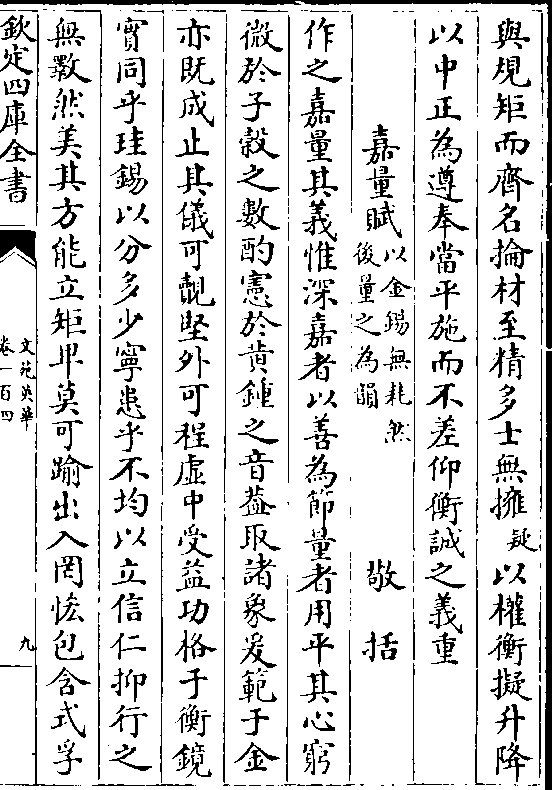 與規矩而齊名掄材至精多士無擁疑以權衡擬升降
以中正為遵奉當平施而不差仰衡誠之義重
嘉量賦以金錫無耗然後量之為韻 敬括
作之嘉量其義惟深嘉者以善為節量者用平其心窮
微於子穀之數酌憲於黄鍾之音葢取諸象爰範于金
亦既成止其儀可覿堅外可程虚中受益功格于衡鏡
實同乎珪錫以分多少寧患乎不均以立信仁抑行之
無斁然美其方能立矩卑莫可踰出入罔恡包含式孚
欽定四庫全書
文苑英華
卷一百四
九